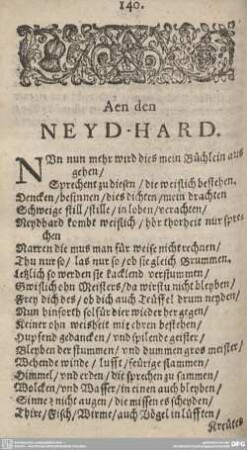 140.
Aen den
NEYD-HARD.
NUn nun mehr wird dies mein Büchlein aus
gehen/
Sprechent zu diesen / die weislich bestehen.
Dencken/besinnen/dies dichten/mein drachten
Schweige still/stille/in loben/verachten/
Neydhard kombt weislich/hör thorheit nur spre
chen
Narren die mus man für weise nicht rechnen/
Thu nur so/ las nur so/ ob sie gleich Grummen.
Letzlich so werden sie kacklend verstummen/
Gwislich ohn Meisters/da wirstu nicht bleyben/
Frey dich des/ob dich auch Teüffel drum neyden/
Nun hinforth sol für dier wieder her gegen/
Keiner ohn weisheit mit ehren bestehen/
Hupfend gedancken/ vnd spilende geister/
Bleyben der stummen/ vnd dummen gros meister/
Wehende winde/ lufft/feürige flammen/
Himmel/ vnd erden/ die sprechen zu sammen/
Wolcken/vnd Wasser/in einen auch bleyben/
Sinne nicht augen/die missen es scheyden/
Thire/Fisch/Wirme/auch Vögel in lüfften/
Kreütes